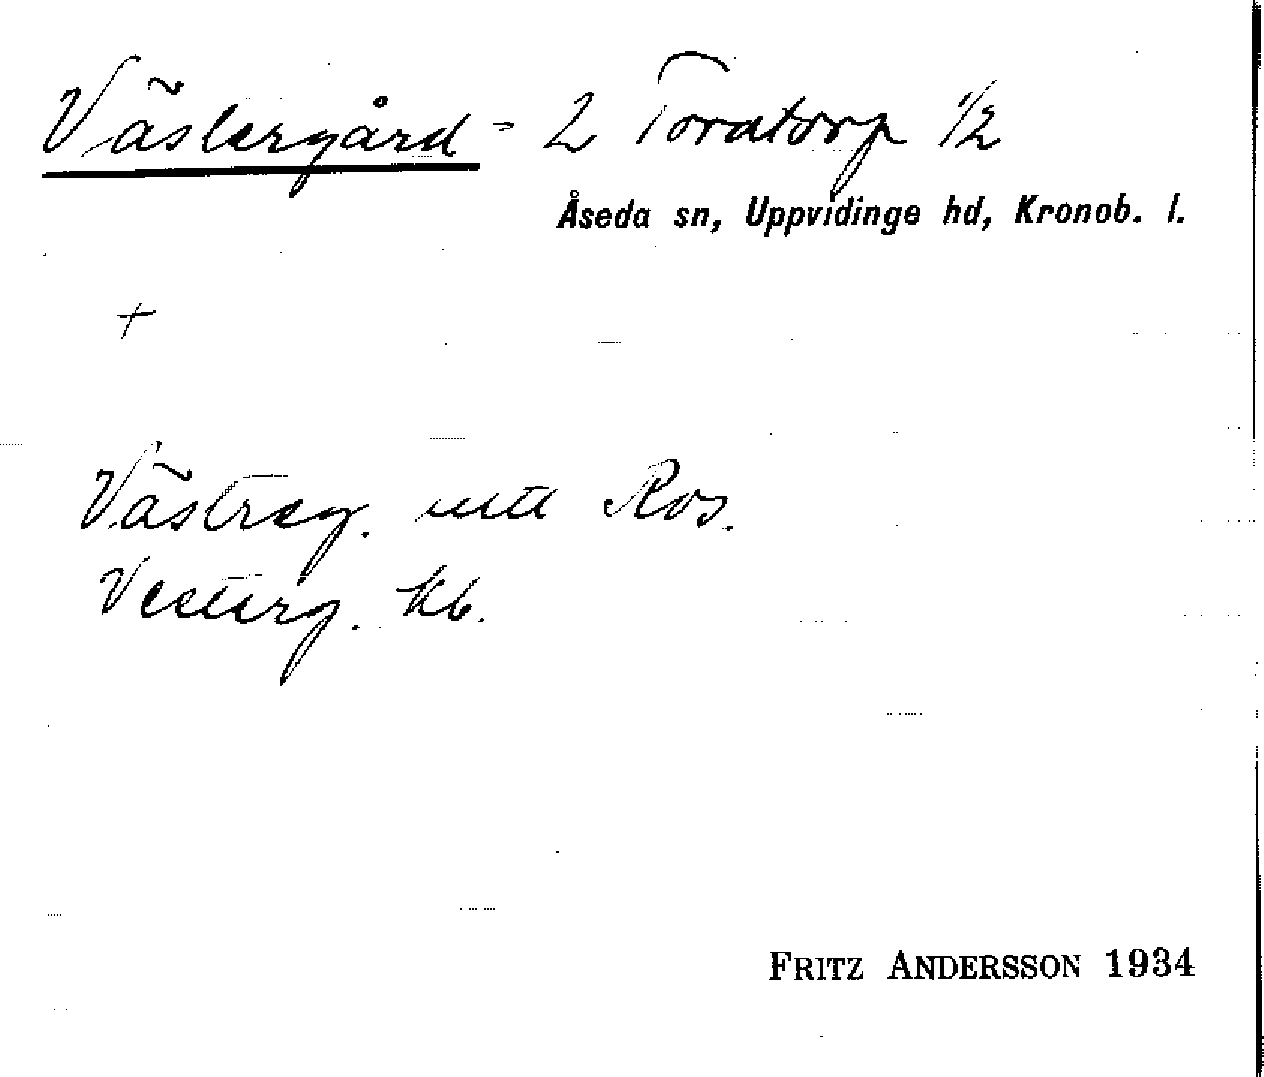 Västergård = 2 Toratorp 1/2
Åseda sn, Uppvidinge hd, Kronob. l.
+
Västreg. utt Ros.
Vesterg. kb.
FRITZ ANDERSSON 1934